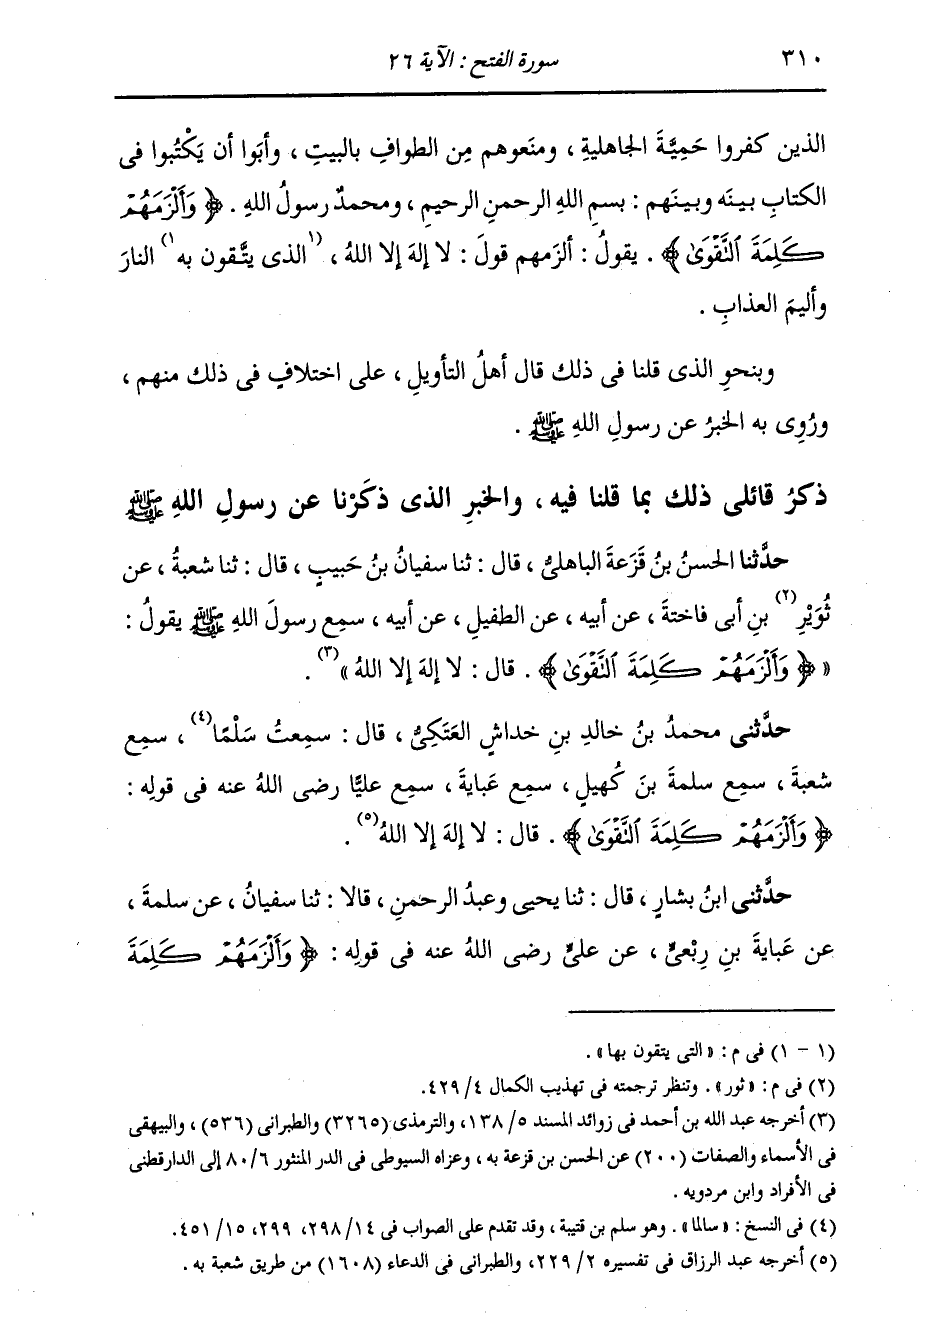 ٣١٠
سورة الفتح : الآية ٢٦
الذين كفروا حَمِيَّةَ الجاهليةِ ، ومنَعوهم مِن الطوافِ بالبيتِ ، وأبَوا أن يَكْتُبوا فى
الكتابِ بينَه وبينَهم : بسمِ اللهِ الرحمنِ الرحيمِ ، ومحمدٌ رسولُ اللهِ . ﴿ وَأَلْزَمَهُمْ
كَلِمَةَ ٱلتَّقْوَىٰ ﴾ . يقولُ : ألزمهم قولَ : لا إلهَ إلا اللهُ ، (١الذى يتَّقون به١) النارَ
وأليمَ العذابِ .
وبنحوِ الذى قلنا فى ذلك قال أهلُ التأويلِ ، على اختلافٍ فى ذلك منهم ،
ورُوِى به الخبرُ عن رسولِ اللهِ ﷺ .
ذكرُ قائلى ذلك بما قلنا فيه ، والخبرِ الذى ذكَرْنا عن رسولِ اللهِ ﷺ
حدَّثنا الحسنُ بنُ قَزَعةَ الباهلىُّ ، قال : ثنا سفيانُ بنُ حَبيبٍ ، قال : ثنا شعبةُ ، عن
ثُوَيْرِ(٢) بنِ أبى فاختةَ ، عن أبيه ، عن الطفيلِ ، عن أبيه ، سمِع رسولَ اللهِ ﷺ يقولُ :
« ﴿ وَأَلْزَمَهُمْ كَلِمَةَ ٱلتَّقْوَىٰ ﴾ . قال : لا إلهَ إلا اللهُ »(٣) .
حدَّثنى محمدُ بنُ خالدِ بنِ خداشٍ العَتَكِىُّ ، قال : سمِعتُ سَلْمًا(٤) ، سمِع
شعبةَ ، سمِع سلمةَ بنَ كُهيلٍ ، سمِع عَبايةَ ، سمِع عليًّا رضى اللهُ عنه فى قولِه :
﴿ وَأَلْزَمَهُمْ كَلِمَةَ ٱلتَّقْوَىٰ ﴾ . قال : لا إلهَ إلا اللهُ(٥) .
حدَّثنى ابنُ بشارٍ ، قال : ثنا يحيى وعبدُ الرحمنِ ، قالا : ثنا سفيانُ ، عن سلمةَ ،
عن عَبايةَ بنِ رِبْعىٍّ ، عن علىٍّ رضى اللهُ عنه فى قولِه : ﴿ وَأَلْزَمَهُمْ كَلِمَةَ
(١ - ١) فى م : « التى يتقون بها » .
(٢) فى م : « ثور » . وتنظر ترجمته فى تهذيب الكمال ٤/ ٤٢٩.
(٣) أخرجه عبد الله بن أحمد فى زوائد المسند ٥/ ١٣٨، والترمذى (٣٢٦٥) والطبرانى (٥٣٦) ، والبيهقى
فى الأسماء والصفات (٢٠٠) عن الحسن بن قزعة به ، وعزاه السيوطى فى الدر المنثور ٨٠/٦ إلى الدارقطنى
فى الأفراد وابن مردويه .
(٤) فى النسخ : « سالما » . وهو سلم بن قتيبة ، وقد تقدم على الصواب فى ١٤/ ٢٩٨، ٢٩٩، ١٥/ ٤٥١.
(٥) أخرجه عبد الرزاق فى تفسيره ٢/ ٢٢٩، والطبرانى فى الدعاء (١٦٠٨) من طريق شعبة به .